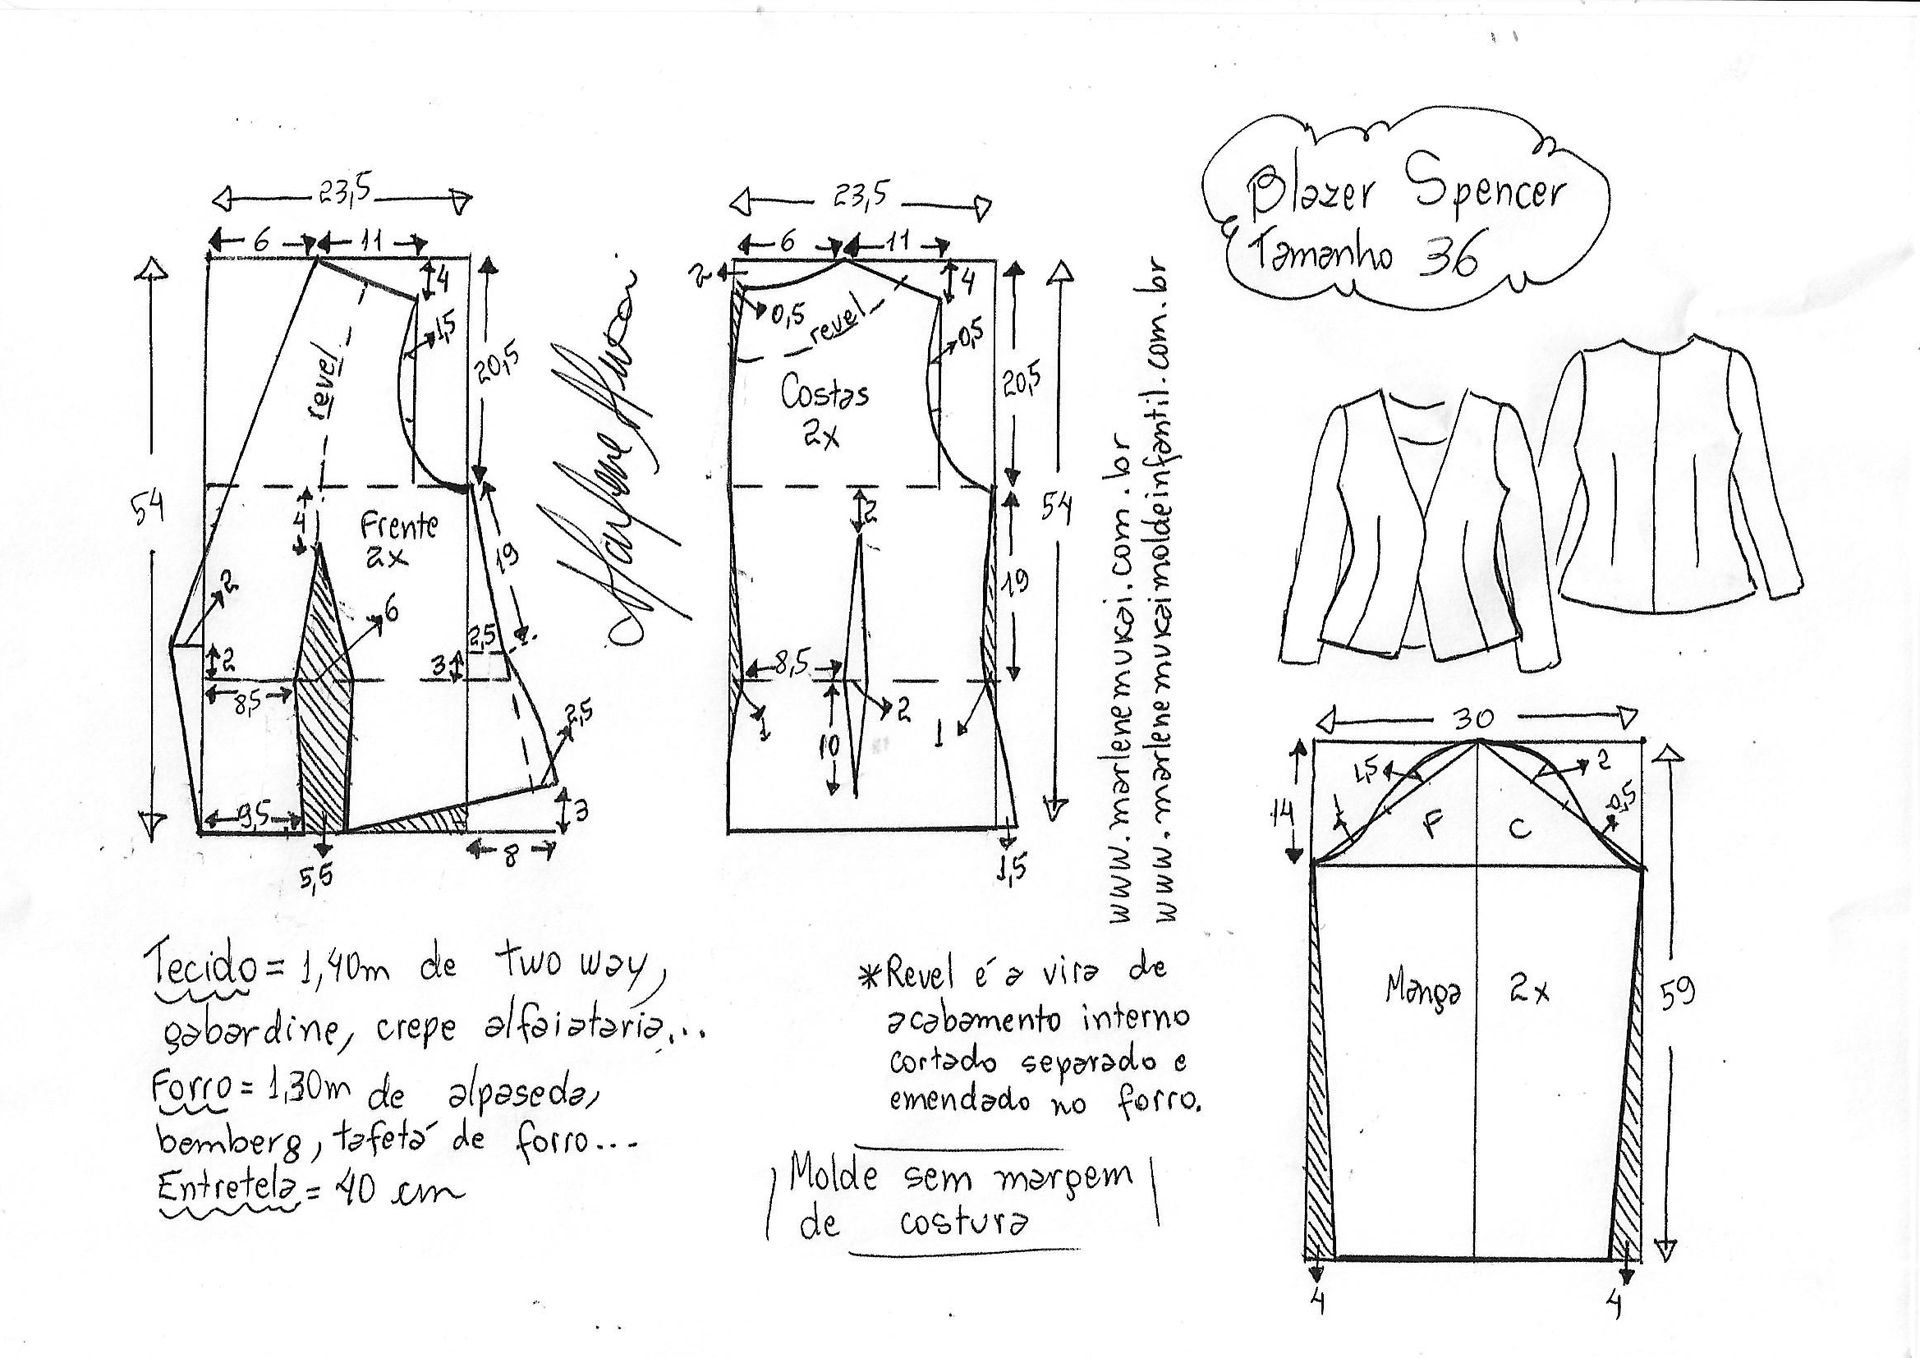 Blazer Spencer
Tamanho 36
23,5
6
11
4
1,5
20,5
revel
54
4
Frente
2x
19
2
6
2,5
2
3
8,5
2,5
9,5
3
8
5,5
Marlene Mukai
23,5
6
11
2
4
0,5
revel
0,5
Costas
2x
20,5
2
54
19
8,5
1
2
1
10
1,5
www.marlenemukai.com.br
www.marlenemukaimoldeinfantil.com.br
30
1,5
2
14
1
0,5
F
C
Manga 2x
59
4
4
Tecido = 1,40m de two way,
gabardine, crepe alfaiataria...
Forro = 1,30m de alpaseda,
bemberg, tafetá de forro...
Entretela = 40 cm
*Revel é a vira de
acabamento interno
cortado separado e
emendado no forro.
Molde sem margem
de costura